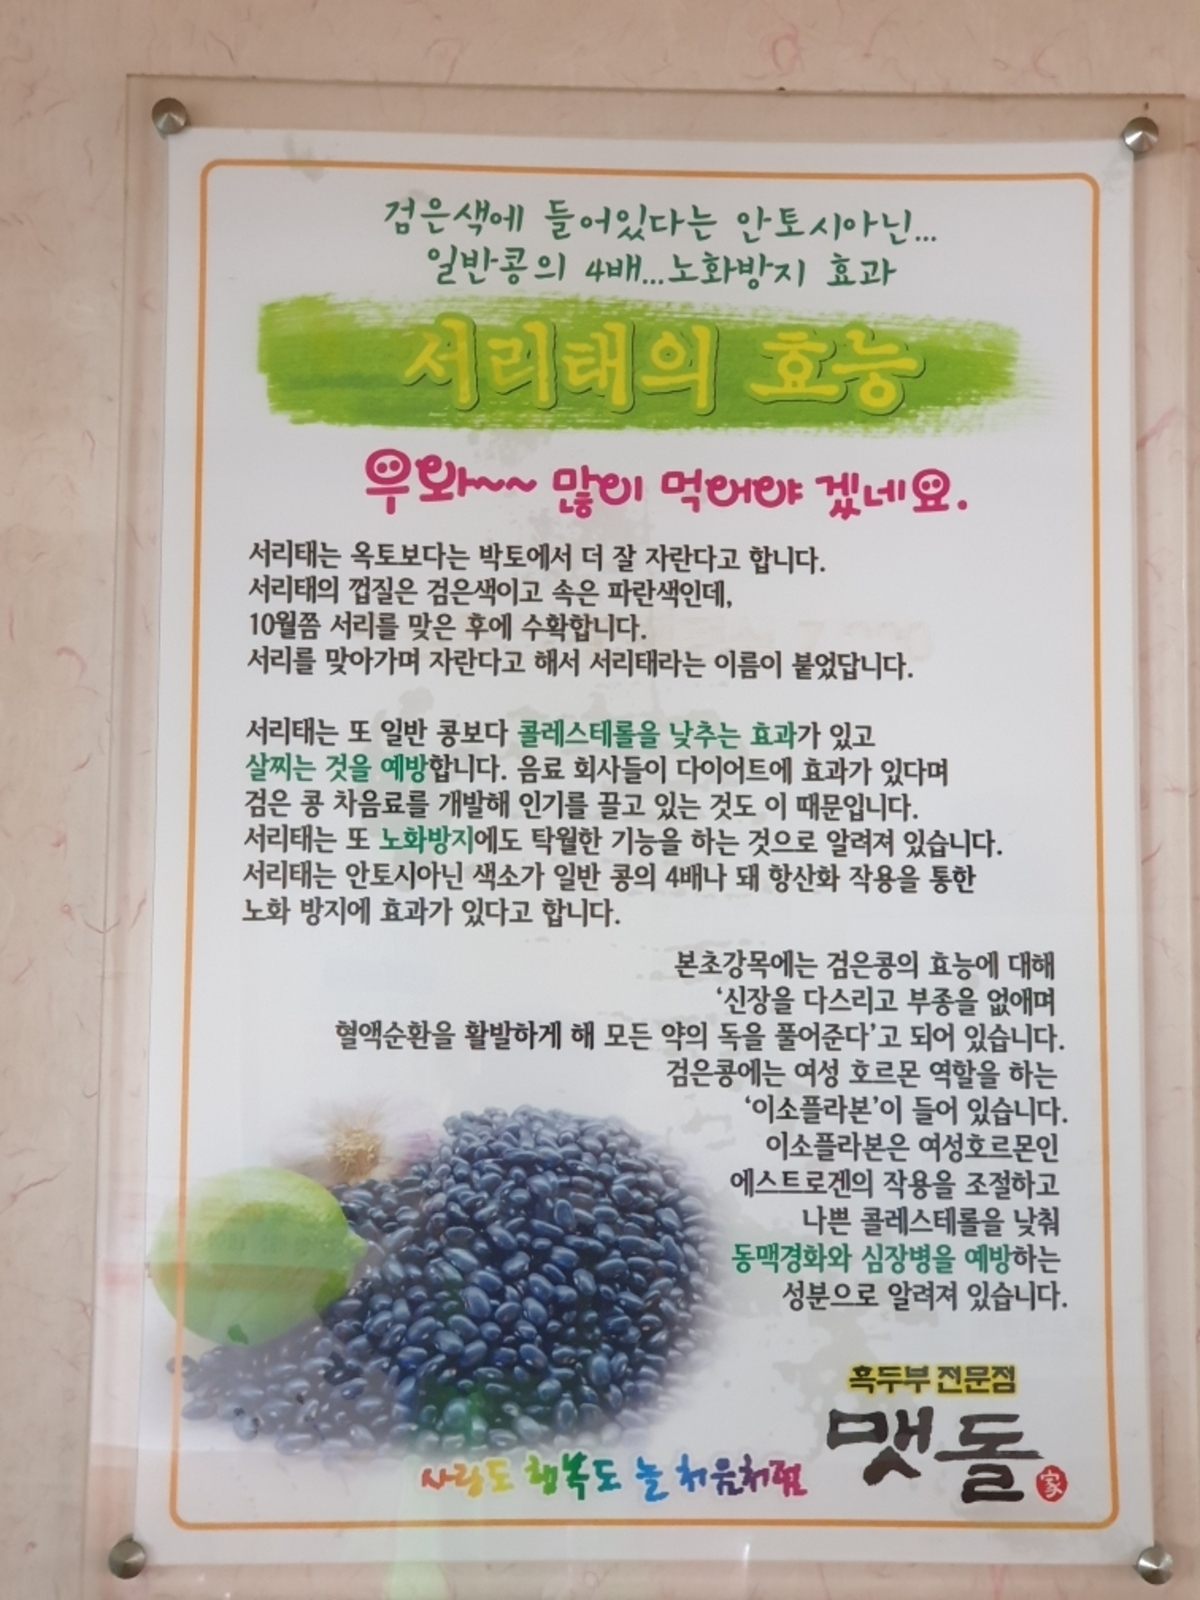 검은색에 들어있다는 안토시아닌...
일반콩의 4배...노화방지 효과
서리태의 효능
우와~~ 많이 먹어야 겠네요.
서리태는 옥토보다는 박토에서 더 잘 자란다고 합니다.
서리태의 껍질은 검은색이고 속은 파란색인데,
10월쯤 서리를 맞은 후에 수확합니다.
서리를 맞아가며 자란다고 해서 서리태라는 이름이 붙었답니다.
서리태는 또 일반 콩보다 콜레스테롤을 낮추는 효과가 있고
살찌는 것을 예방합니다. 음료 회사들이 다이어트에 효과가 있다며
검은 콩 차음료를 개발해 인기를 끌고 있는 것도 이 때문입니다.
서리태는 또 노화방지에도 탁월한 기능을 하는 것으로 알려져 있습니다.
서리태는 안토시아닌 색소가 일반 콩의 4배나 돼 항산화 작용을 통한
노화 방지에 효과가 있다고 합니다.
본초강목에는 검은콩의 효능에 대해
‘신장을 다스리고 부종을 없애며
혈액순환을 활발하게 해 모든 약의 독을 풀어준다’고 되어 있습니다.
검은콩에는 여성 호르몬 역할을 하는
‘이소플라본’이 들어 있습니다.
이소플라본은 여성호르몬인
에스트로겐의 작용을 조절하고
나쁜 콜레스테롤을 낮춰
동맥경화와 심장병을 예방하는
성분으로 알려져 있습니다.
흑두부 전문점
맷돌
家
사랑도 행복도 늘 처음처럼